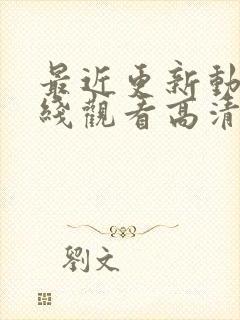 最近更新動
綫觀看高清
劉文